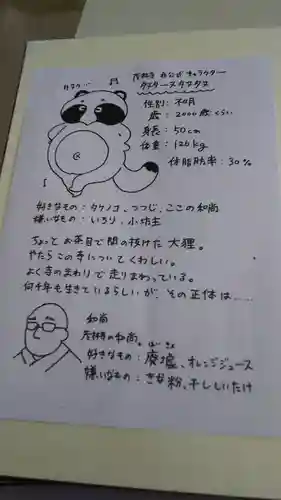 茂林寺 非公式キャラクター
タヌタヌ…♪
性別：不明
歳：2000歳くらい
身長：50cm
体重：120kg
体脂肪率：30%
好きなもの：タケノコ、つつじ、ここの和尚
嫌いなもの：いろり、小坊主
ちょっとお茶目で間の抜けた大狸。
やたらこの寺についてくわしい。
よく寺のまわりで走りまわっている。
何千年も生きているらしいが、その正体は……
和尚
茂林寺の和尚。
好きなもの：廃墟、オレンジジュース
嫌いなもの：きな粉、干ししいたけ